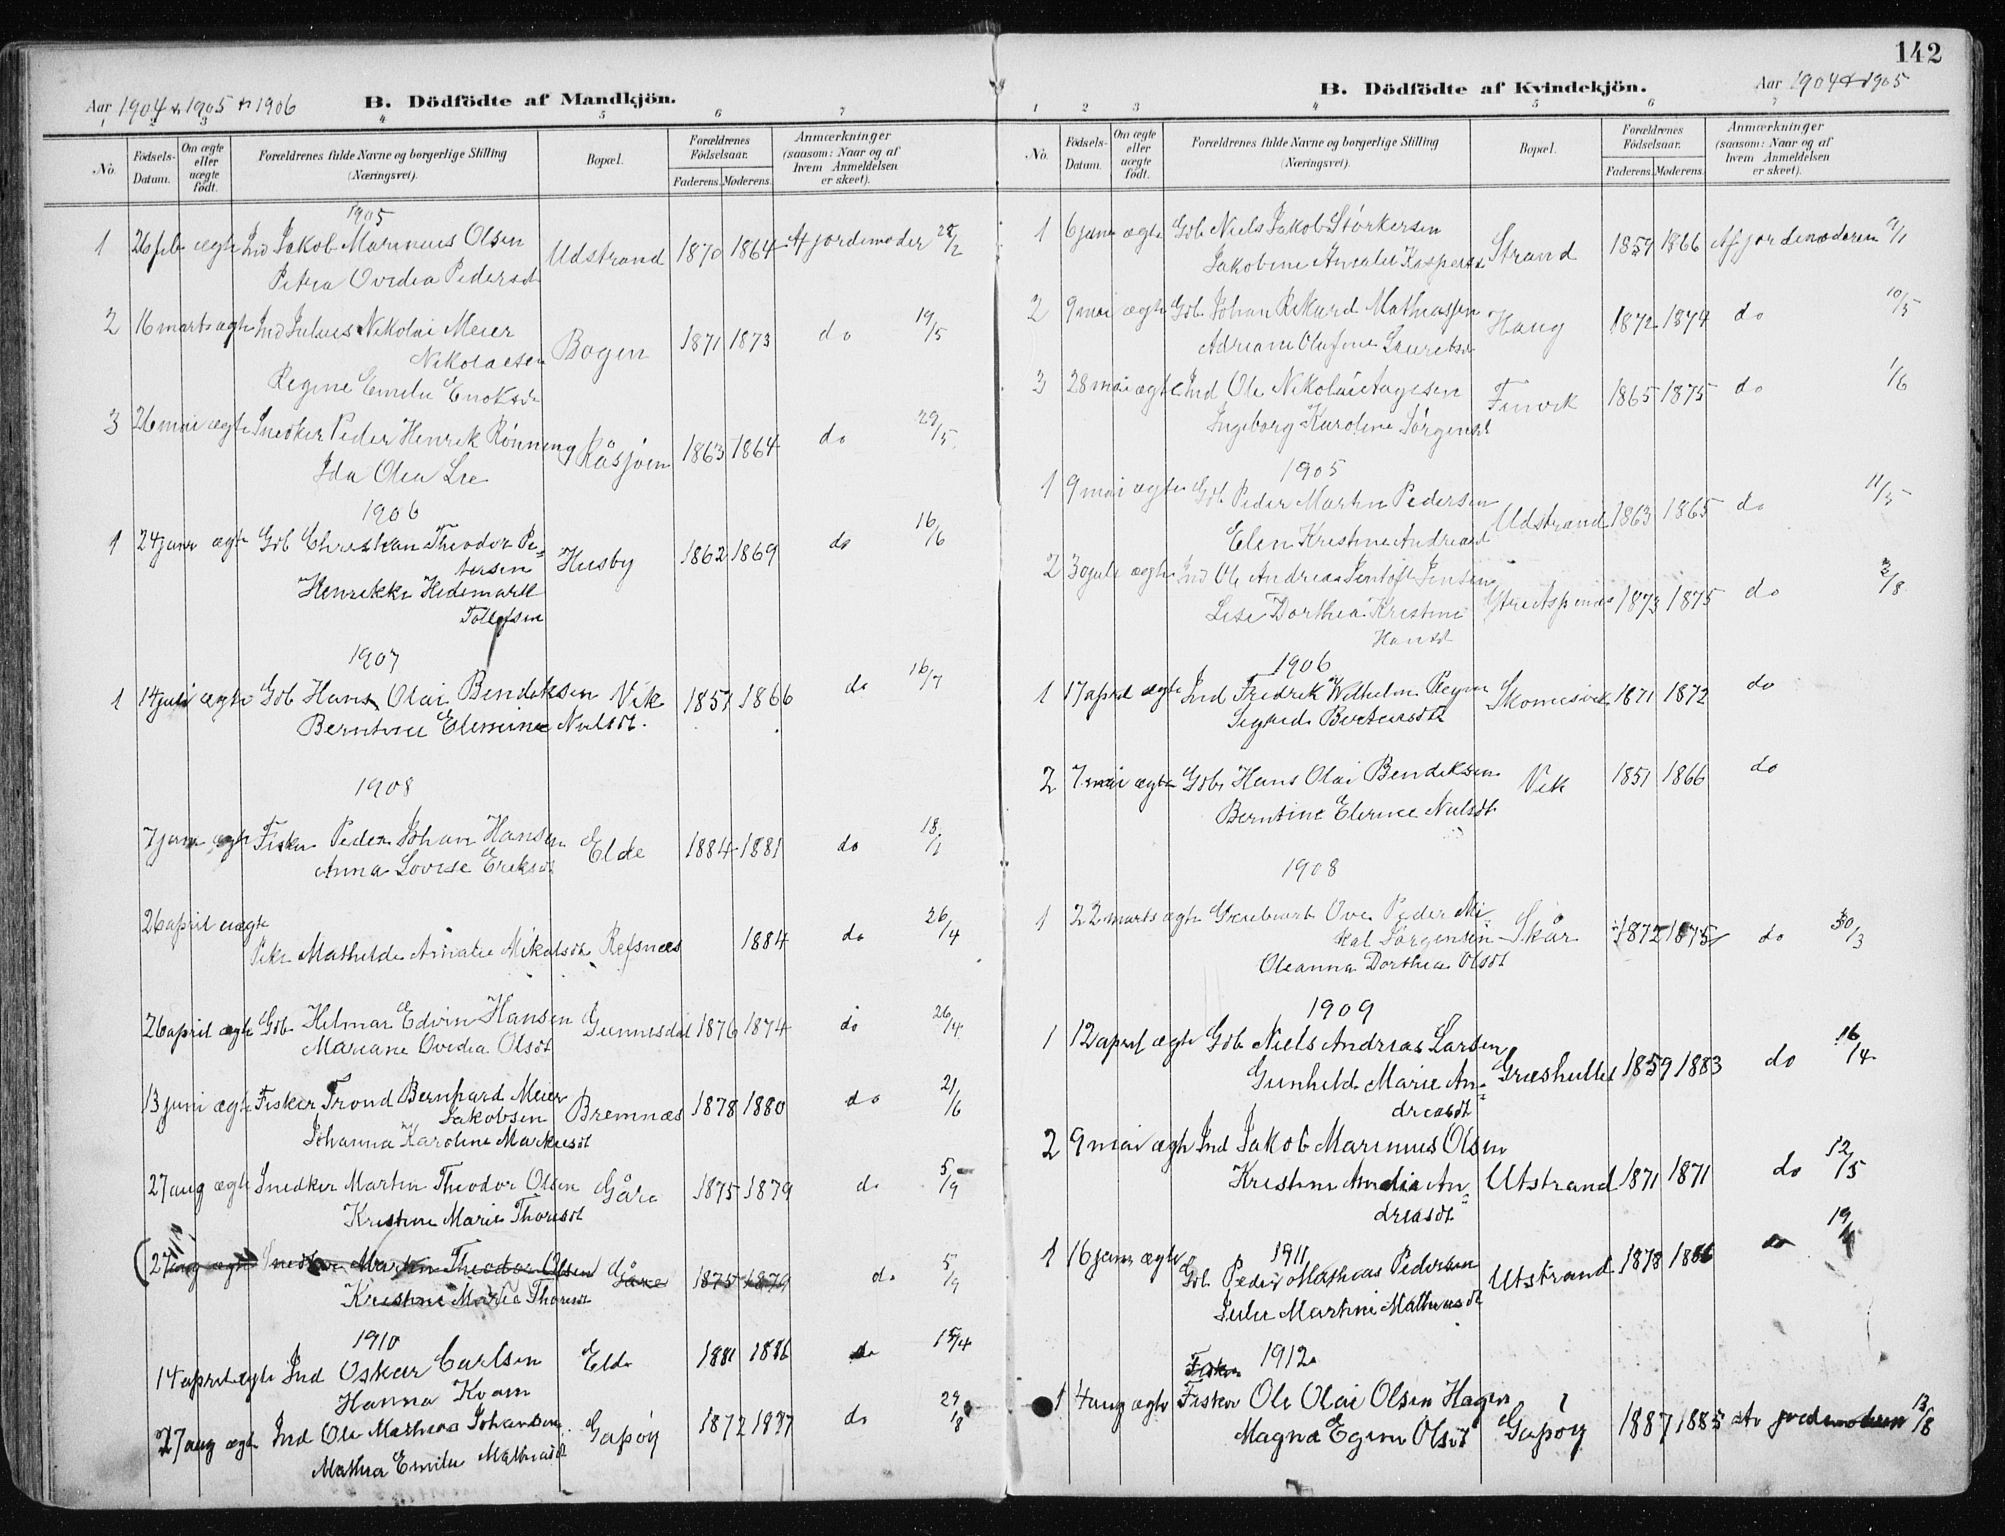 Aar 1904 & 1905 & 1906
B. Dödfödte af Mandkjön.
1 2 3 4 5 6 7
No.
Födsels-Datum.
Om ægte eller uægte födt.
Forældrenes fulde Navne og borgerlige Stilling
(Næringsvei).
Bopæl.
Forældrenes Födselsaar.
Faderens. Moderens.
Anmærkninger
(saasom: Naar og af
hvem Anmeldelsen
er skeet).
1905
1 26 feb ægte Ind Jakob Marinius Olsen Udstrand 1870 1864 Af jordemoder 28/2
Petra Ovedia Pedersdt
2 16 marts ægte Ind Julius Nikolai Meier Bogen 1871 1873 do 19/5
Nikolaisen
Regine Emilie Enoksdt
3 26 mai ægte Snedker Peder Henrik Rönning Råsjöen 1863 1864 do 29/5
Ida Olea Lie
1906
1 24 janr ægte Gdb Christian Theodor Pe- Husby 1862 1869 do 16/6
tersen
Henrikke Hedemark
Tollefsen
1907
1 14 juli ægte Gdb Hans Olai Bendiksen Vik 1851 1866 do 16/7
Berntine Elemine Nielsdt.
1908
7 janr ægte Fisker Peder Johan Hansen Elde 1884 1881 do 18/1
Anna Lovise Eriksdt
26 april uægte
Pike Mathilde Amalie Mikalsdt Refsnæs 1884 do 26/4
26 april ægte Gdb Hilmar Edvin Hansen Gunnesdal 1876 1874 do 26/4
Mariane Ovedia Olsdt
13 juni ægte Fisker Trond Bernhard Meier Bremnæs 1878 1880 do 21/6
Jakobsen
Johanna Karoline Markusdt
27 aug ægte Snedker Martin Theodor Olsen Gåre 1875 1879 do 5/9
Kristine Marie Thoresdt
(27 aug ægte Snedker Martin Theodor Olsen Gåre 1875 1879 do 5/9
Kristine Marie Thoresdt
1910
14 april ægte Ind Oskar Carlsen Elde 1881 1886 do 15/4
Hanna Kvam
27 aug ægte Ind Ole Mathias Johansen Gapöy 1872 do 29/8
Mathea Emilie Mathiasdt
142
Aar 1904 & 1905
B. Dödfödte af Kvindekjön.
1 2 3 4 5 6 7
No.
Födsels-Datum.
Om ægte eller uægte födt.
Forældrenes fulde Navne og borgerlige Stilling
(Næringsvei).
Bopæl.
Forældrenes Födselsaar.
Faderens. Moderens.
Anmærkninger
(saasom: Naar og af
hvem Anmeldelsen
er skeet).
1 6 janr ægte Gdb Niels Jakob Störkersen Strand 1859 1866 Af jordemoderen 9/1
Jakobine Amalie Kaspersd
2 9 mai ægte Gdb Johan Rikard Mathiassen Haug 1872 1879 do 10/5
Adriane Olufine Lauritsdt
3 28 mai ægte Ind Ole Nikolai Aagesen Finvik 1865 1875 do 1/6
Ingeborg Karoline Jörgensdt
1905
1 9 mai ægte Gdb Peder Martin Pedersen Udstrand 1863 1865 do 11/5
Elen Kristine Andreasd
2 30 juli ægte Ind Ole Andreas Jentoft Jensen Ytre Aspenæs 1873 1875 do 2/8
Lise Dorthea Kristine
Hansdt
1906
1 17 april ægte Ind Fredrik Wilhelm 1871 1872 do
Sigrid Berteusdt
2 7 mai ægte Gdb Hans Olai Bendiksen Vik 1851 1866 do
Berntine Elemine Nielsdt
1908
1 22 marts ægte Ove Peder Mi- Skår 1872 1875 do 30/3
kal Jörgensen
Oleanna Dorthea Olsdt
1909
1 12 april ægte Gdb Niels Andreas Larsen Græshullet 1859 1883 do 16/4
Gunhild Marie An-
dreasdt
2 9 mai ægte Ind Jakob Marinius Olsen Utstrand 1871 1871 do 12/5
Kristine Amalia An-
dreasdt
1911
1 16 janr ægte Gdb Peder Mathias Pedersen Utstrand 1878 1886 do 19/1
Julie Martine Mathiasdt
1912
Fisker
1 4 aug ægte Fisker Ole Olai Olsen Hagen Gapöy 1887 1885 Av jordmoderen 13/8
Magna Egine Olsdt